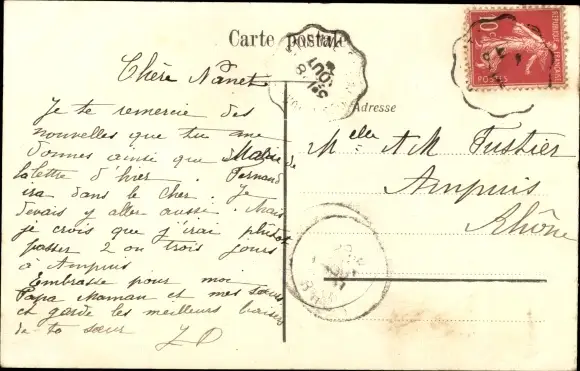 Carte postale
Chère Nanet
Je te remercie des
nouvelles que tu me
donnes ainsi que Marie de
la lettre d'hier. Fernand
ira dans le Cher. Je
devais y aller aussi. Mais
je crois que j'irai plutôt
passer 2 ou trois jours
à Ampuis
Embrasse pour moi
Papa Maman et mes sœurs
et garde les meilleurs baisers
de ta sœur
Adresse
Melle A M
Ampuis
Rhône
10